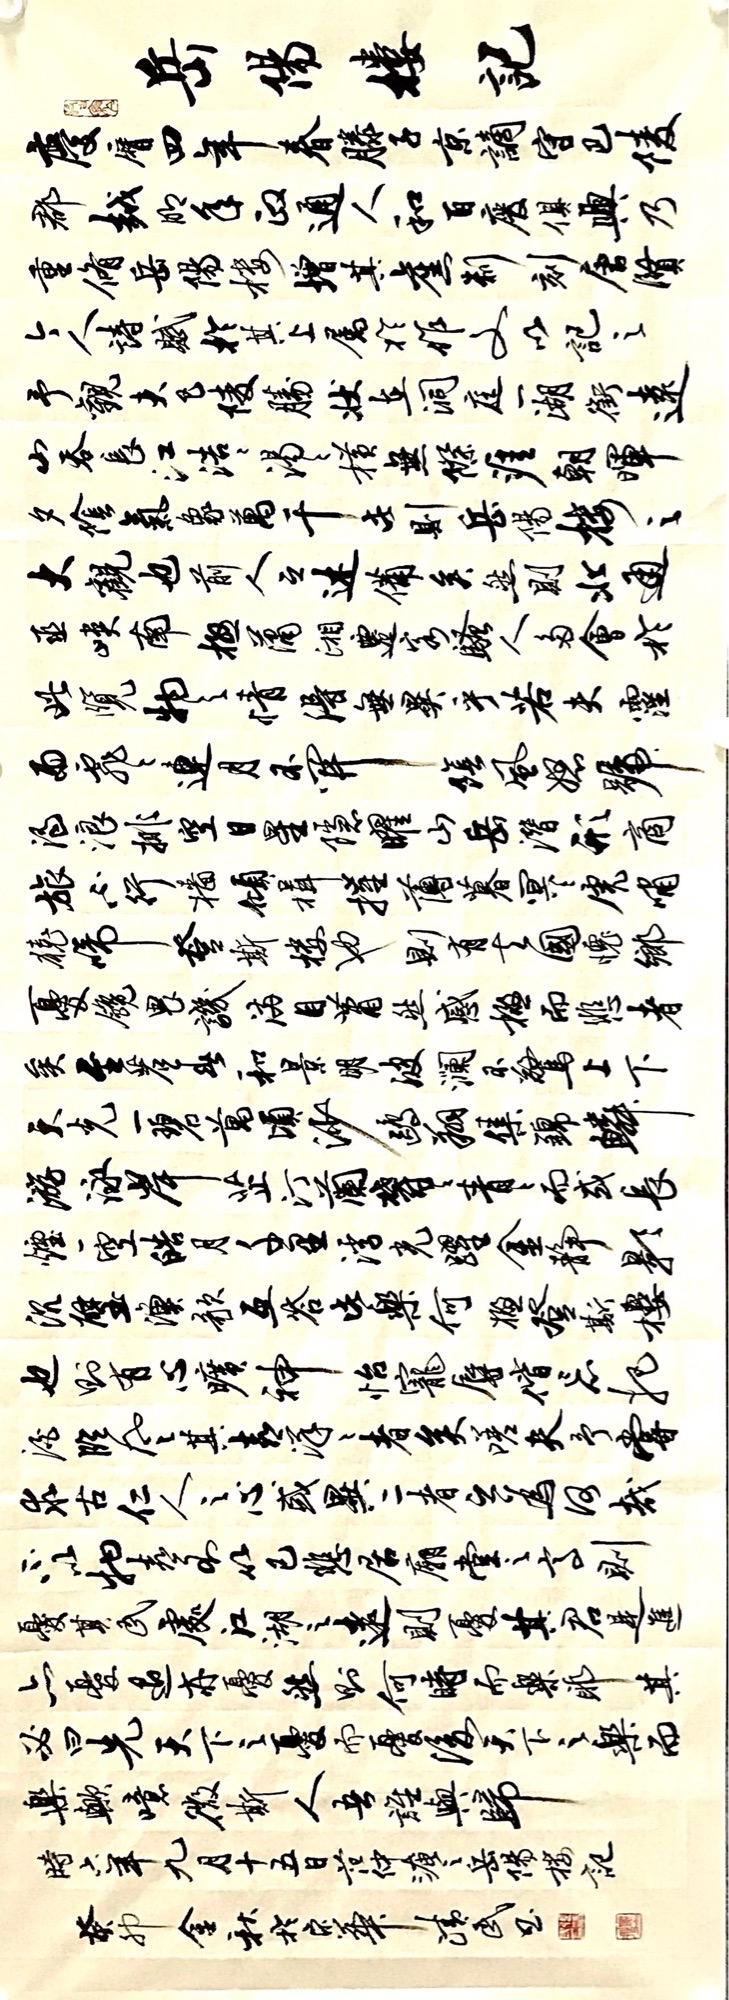 岳陽樓記
慶曆四年春滕子京謫守巴陵
郡越明年政通人和百廢俱興乃
重脩岳陽樓增其舊制刻唐賢
今人詩賦於其上屬於作文以記之
予觀夫巴陵勝狀在洞庭一湖銜遠
山吞長江浩〻湯〻橫無際涯朝暉
夕陰氣象萬千此則岳陽樓之
大觀也前人之述備矣然則北通
巫峽南極瀟湘遷客騷人多會於
此覽物之情得無異乎若夫霪
雨霏〻連月不開陰風怒號
濁浪排空日星隱曜山岳潛形商
旅不行檣傾楫摧薄暮冥〻虎嘯
猿啼登斯樓也則有去國懷鄉
憂讒畏譏滿目蕭然感極而悲者
矣至若春和景明波瀾不驚上下
天光一碧萬頃沙鷗翔集錦鱗
游泳岸芷汀蘭郁〻青〻而或長
煙一空皓月千里浮光躍金靜影
沉璧漁歌互答此樂何極登斯樓
也則有心曠神怡寵辱偕忘把
酒臨風〻其喜洋〻者矣嗟夫予嘗
求古仁人之心或異二者之為何哉
不以物喜不以己悲居廟堂之高則
憂其民處江湖之遠則憂其君是進
亦憂退亦憂然則何時而樂耶其
必曰先天下之憂而憂後天下之樂而
樂歟噫微斯人吾誰與歸
時六年九月十五日范仲淹之岳陽樓記
癸卯金秋於京華